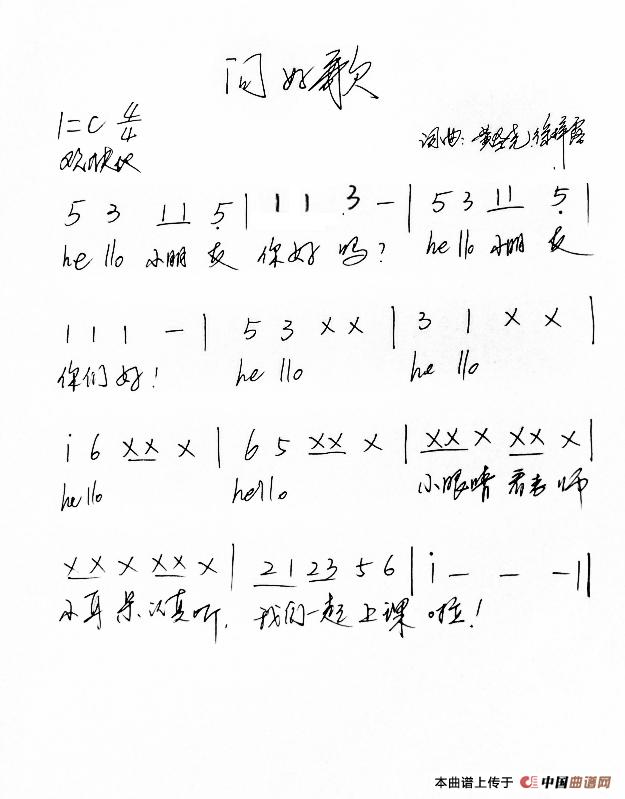 问好歌
1=C 4/4
欢快地
词曲:
5 3 1 1 5 | 1 1 3 - | 5 3 1 1 5 |
hello 小朋友 你好吗? hello 小朋友
1 1 1 - | 5 3 X X | 3 1 X X |
你们好! hello hello
i 6 XX X | 6 5 XX X | XX X XX X |
hello hello 小眼睛 看老师
XX X XX X | 2 1 2 3 5 6 | i - - - ||
小耳朵 认真听, 我们一起上课啦!
本曲谱上传于 中国曲谱网